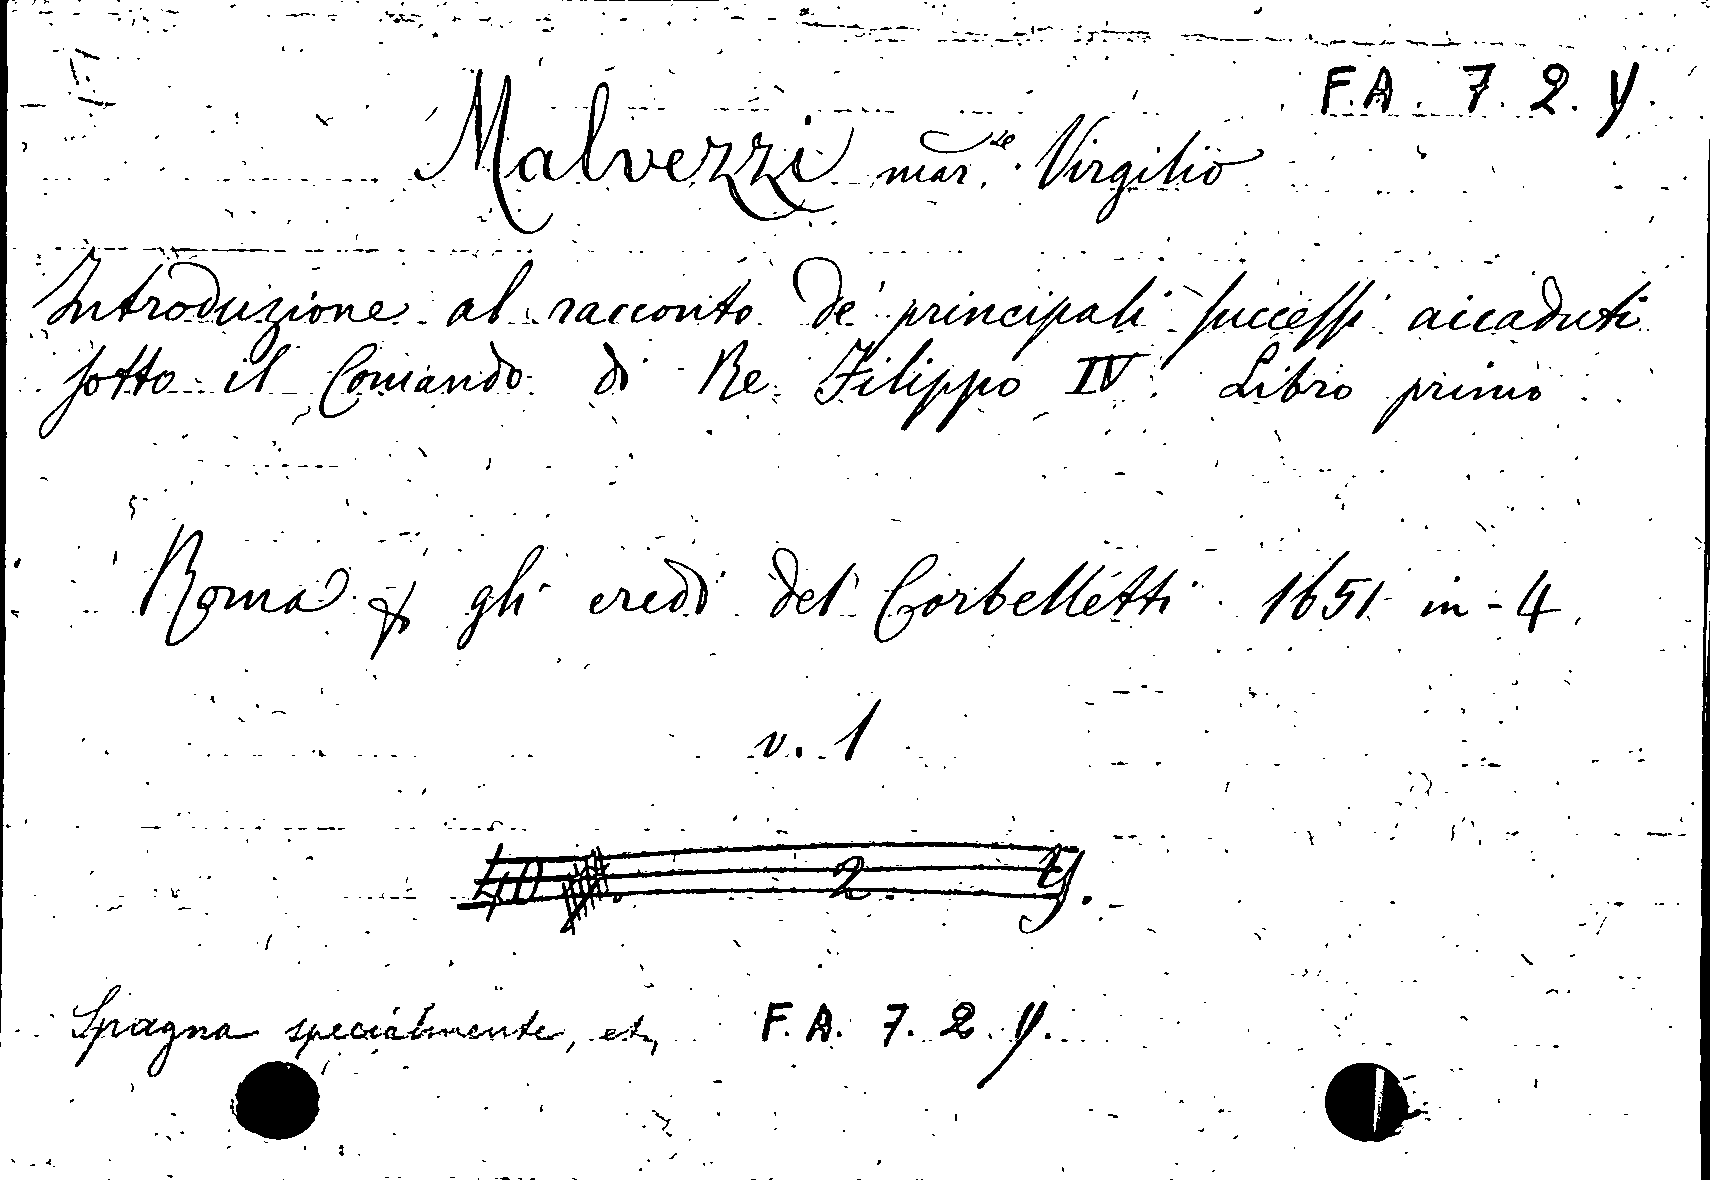 F.A. 7. 2. y.
Malvezzi mar.se Virgilio
Introduzione al racconto de' principali successi accaduti
sotto il Comando di Re Filippo IV. Libro primo
Roma gli eredi del Corbelletti 1651 in-4.
v. 1
40 2. y.
Spagna specialmente, etc, F.A. 7. 2. y.